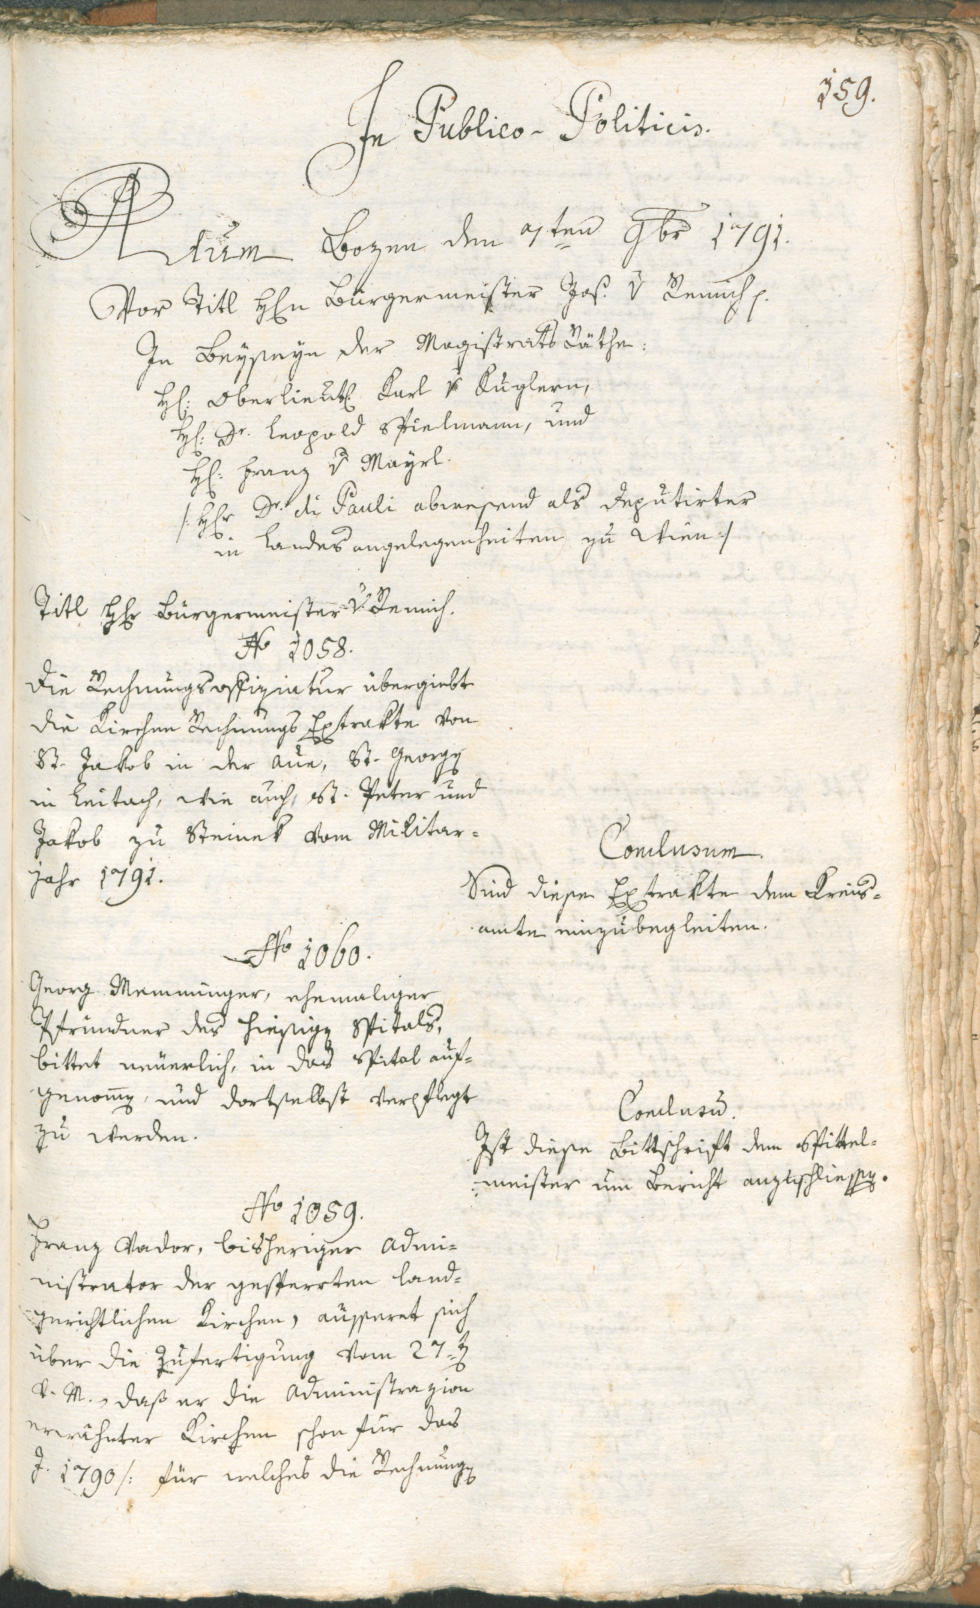 159.
In Publico-Politicis.
Actum Bozen den 7ten 9br 1791.
Vor Titl Hhn Bürgermeister Jos. v Remich p.
In Beyseyn der Magistrats Räthe:
Hh: Oberlieut. Karl v Kuglern,
Hh: Dr. Leopold Spielmann, und
Hh: Franz v Mayrl.
/: Hhr Dr. di Pauli abwesend als Deputirter
in Landesangelegenheiten zu Wien :/
Titl Hhr Bürgermeister v Remich.
No 1058.
Die Rechnungsoffiziatur übergiebt
die Kirchen Rechnungs Extrakte von
St. Jakob in der Aue, St. Georgen
in Leitach, wie auch St. Peter und
Jakob zu Steinek vom Militar-
jahr 1791.
Conclusum.
Sind diese Extrakte dem Kreis-
amte einzubegleiten.
No 1060.
Georg Memminger, ehemaliger
Pfründner des hiesigen Spitals,
bittet neuerlich, in das Spital auf-
genommen, und dortselbst verpflegt
zu werden.
Conclusū.
Ist diese Bittschrift dem Spittel-
meister um Bericht anzuschliessen.
No 1059.
Franz Vador, bisheriger Admi-
nistrator der gesperrten land-
gerichtlichen Kirchen, äusseret sich
über die Zufertigung vom 27ten
v. M., daß er die Administrazion
erwähnter Kirchen schon für das
J. 1790 /: für welches die Rechnungen